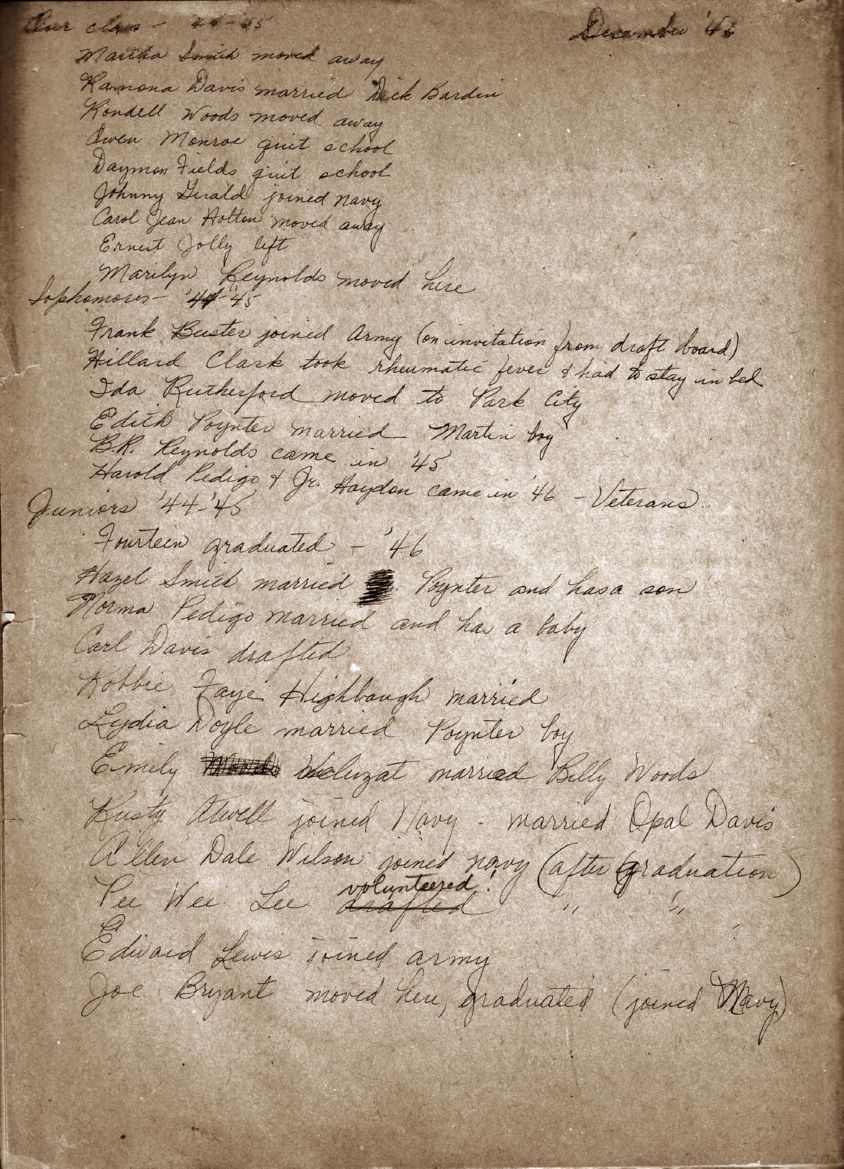 Our class - '44-'45 December '46
Martha Smith moved away
Ramona Davis married Dick Bardin
Rondell Woods moved away
Owen Monroe quit school
Daymon Fields quit school
Johnny Gerald joined navy
Carol Jean Holton moved away
Ernest Jolly left
Marilyn Reynolds moved here
Sophomores - '44-'45
Frank Buster joined Army (on invitation from draft board)
Hillard Clark took rheumatic fever & had to stay in bed
Ida Rutherford moved to Park City
Edith Poynter married Martin boy
B.R. Reynolds came in '45
Harold Pedigo & Jr. Haydon came in '46 - Veterans
Juniors '44-'45
Fourteen graduated - '46
Hazel Smith married Poynter and has a son
Norma Pedigo married and has a baby
Carl Davis drafted
Robbie Faye Highbaugh married
Lydia Doyle married Poynter boy
Emily married Billy Woods
Rusty Atwell joined Navy - married Opal Davis
Allen Dale Wilson joined navy (after graduation)
Pee Wee Lee drafted volunteered! " "
Edward Lewis joined army
Joe Bryant moved here, graduated (joined Navy)